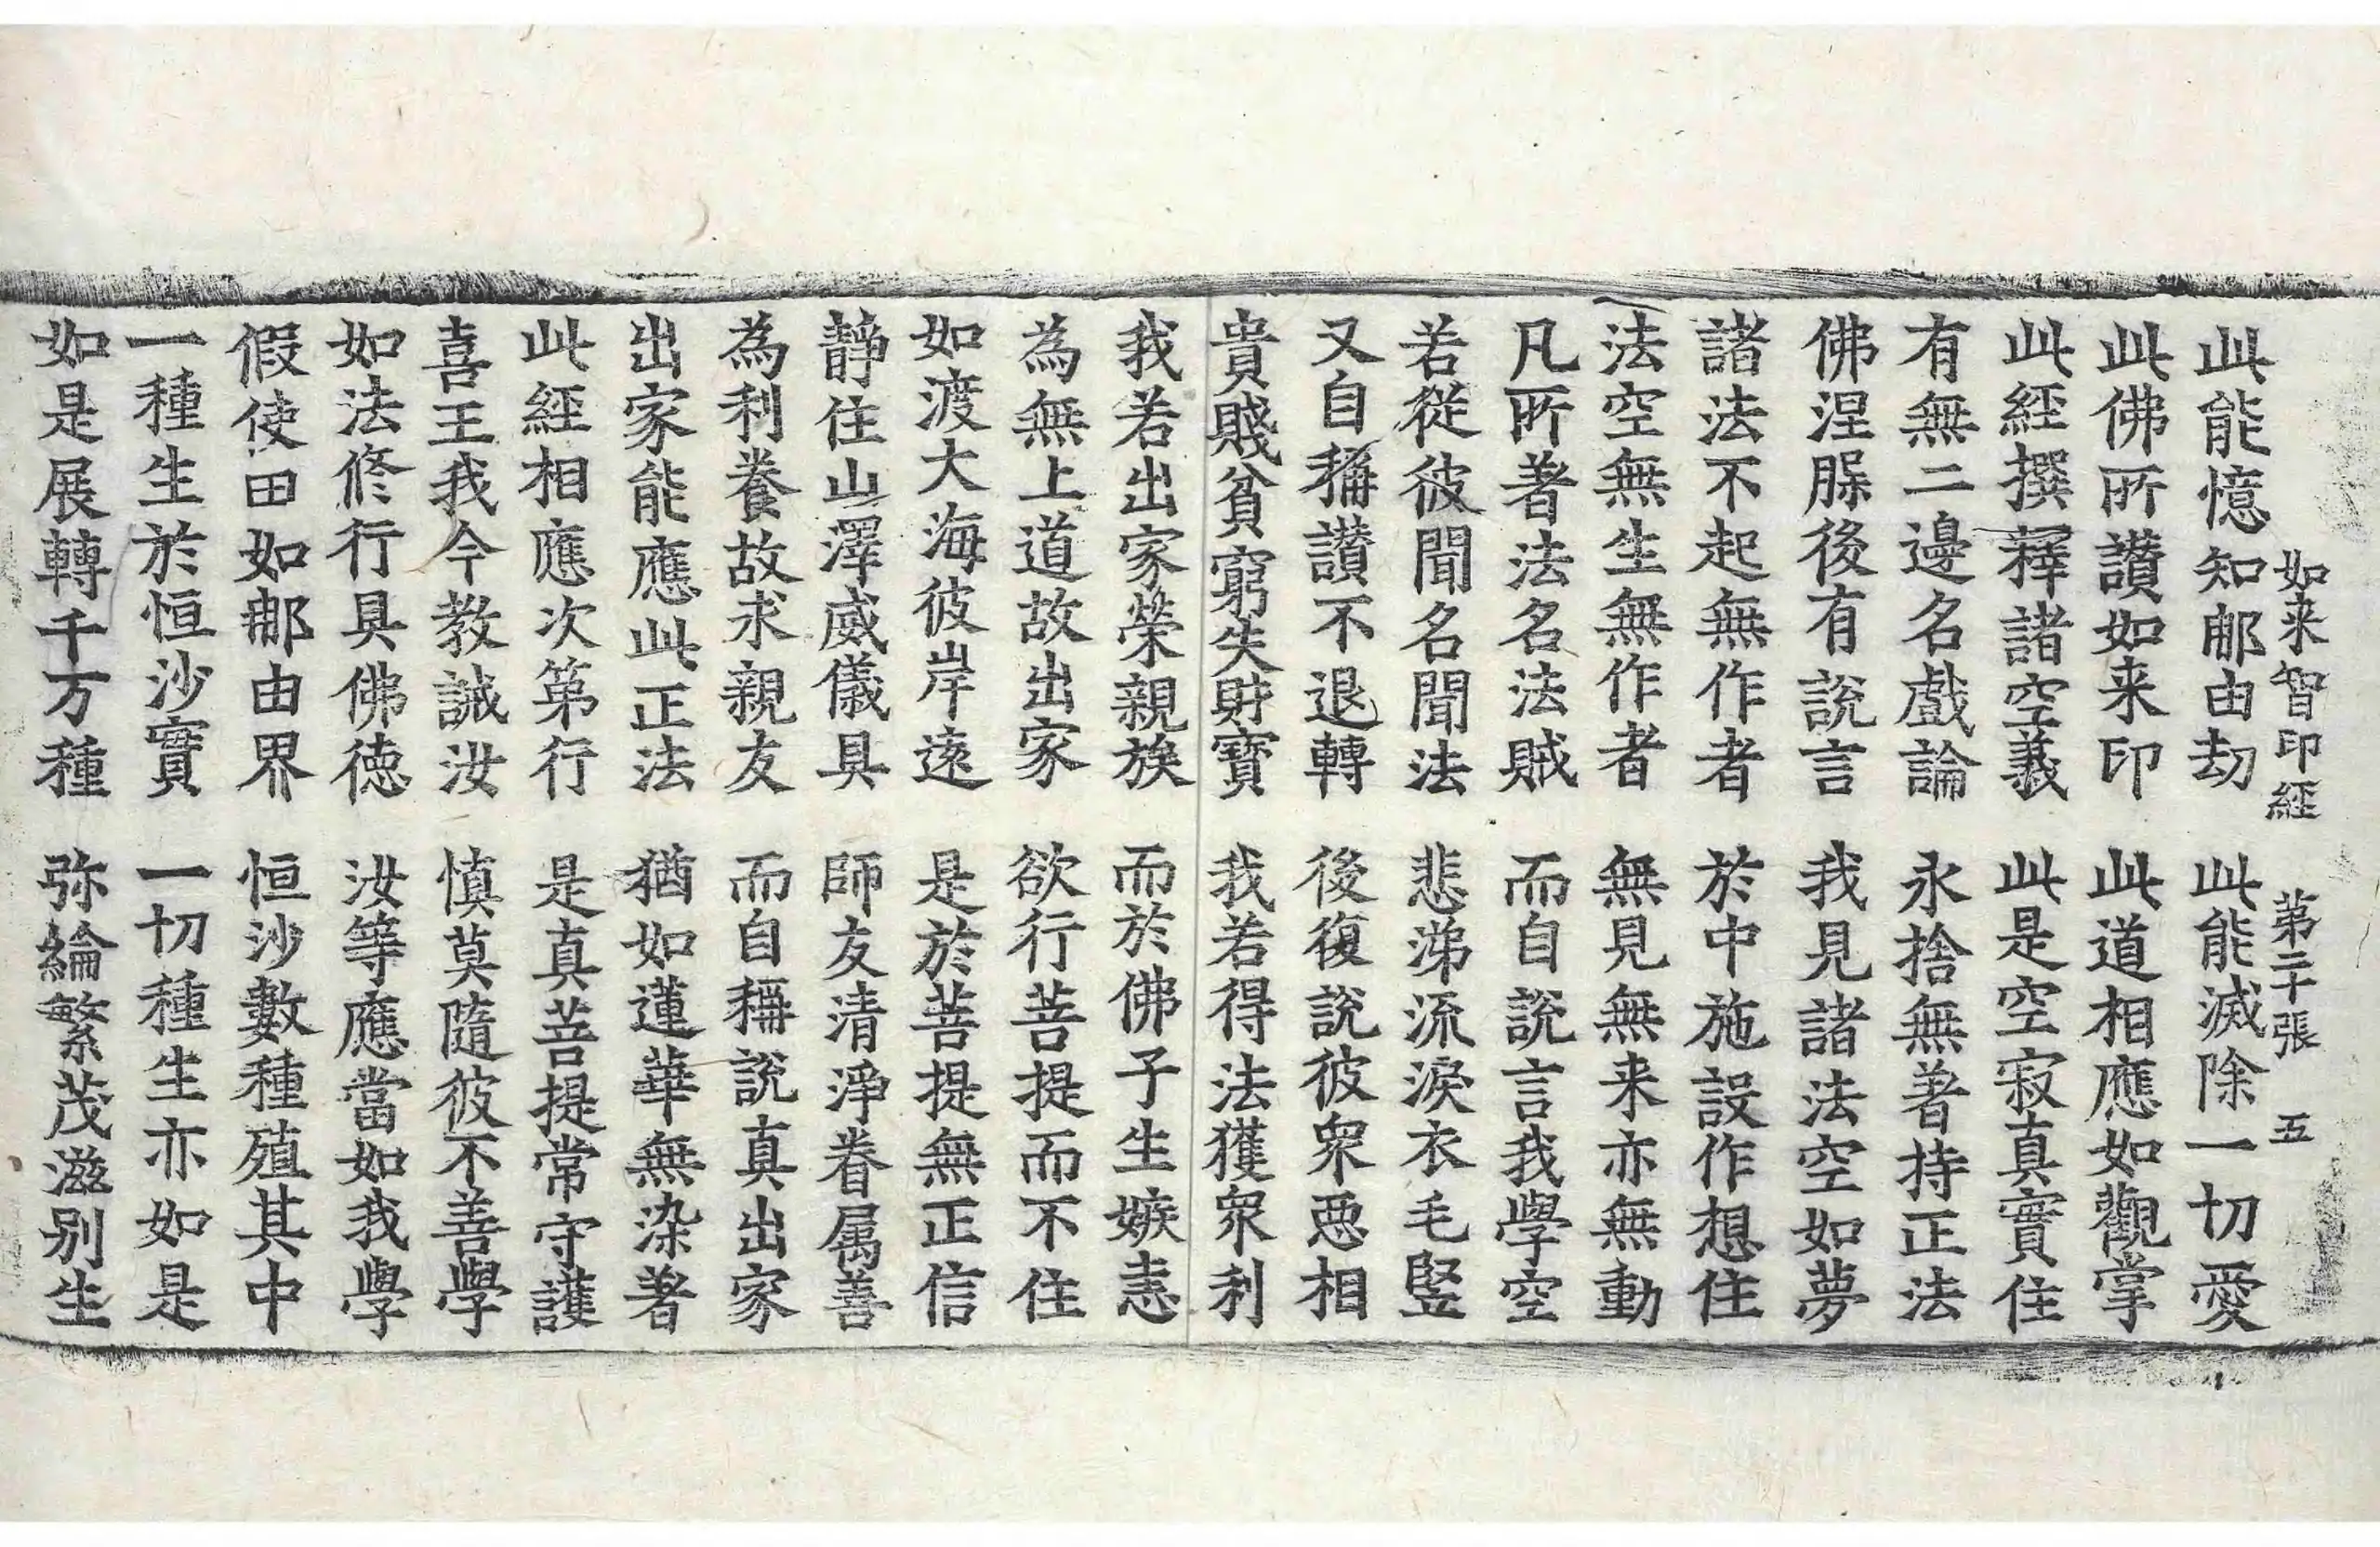 如来智印經 第二十張 五
此能憶知那由劫 此能滅除一切愛
此佛所讃如来印 此道相應如觀掌
此經撰釋諸空義 此是空寂真實住
有無二邊名戲論 永捨無著持正法
佛涅槃後有說言 我見諸法空如夢
諸法不起無作者 於中施設作想住
法空無生無作者 無見無来亦無動
凡所著法名法賊 而自說言我學空
若從彼聞名聞法 悲涕流淚衣毛竪
又自稱讃不退轉 後復說彼衆惡相
貴賤貧窮失財寶 我若得法獲衆利
我若出家榮親族 而於佛子生嫉恚
為無上道故出家 欲行菩提而不住
如渡大海彼岸遠 是於菩提無正信
靜住山澤威儀具 師友清淨眷属善
為利養故求親友 而自稱說真出家
出家能應此正法 猶如蓮華無染著
此經相應次第行 是真菩提常守護
喜王我今教誡汝 慎莫隨彼不善學
如法修行具佛德 汝等應當如我學
假使田如那由界 恒沙數種殖其中
一種生於恒沙實 一切種生亦如是
如是展轉千万種 弥綸繁茂滋别生